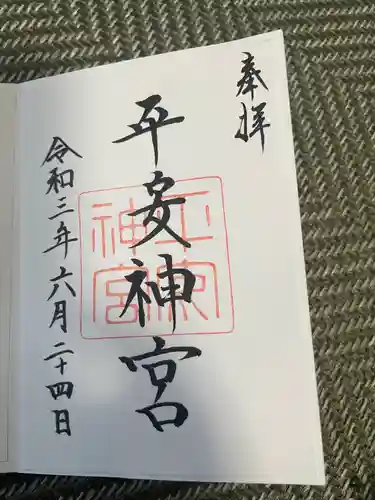 奉拝
平安神宮
令和三年六月二十四日
平安
神宮